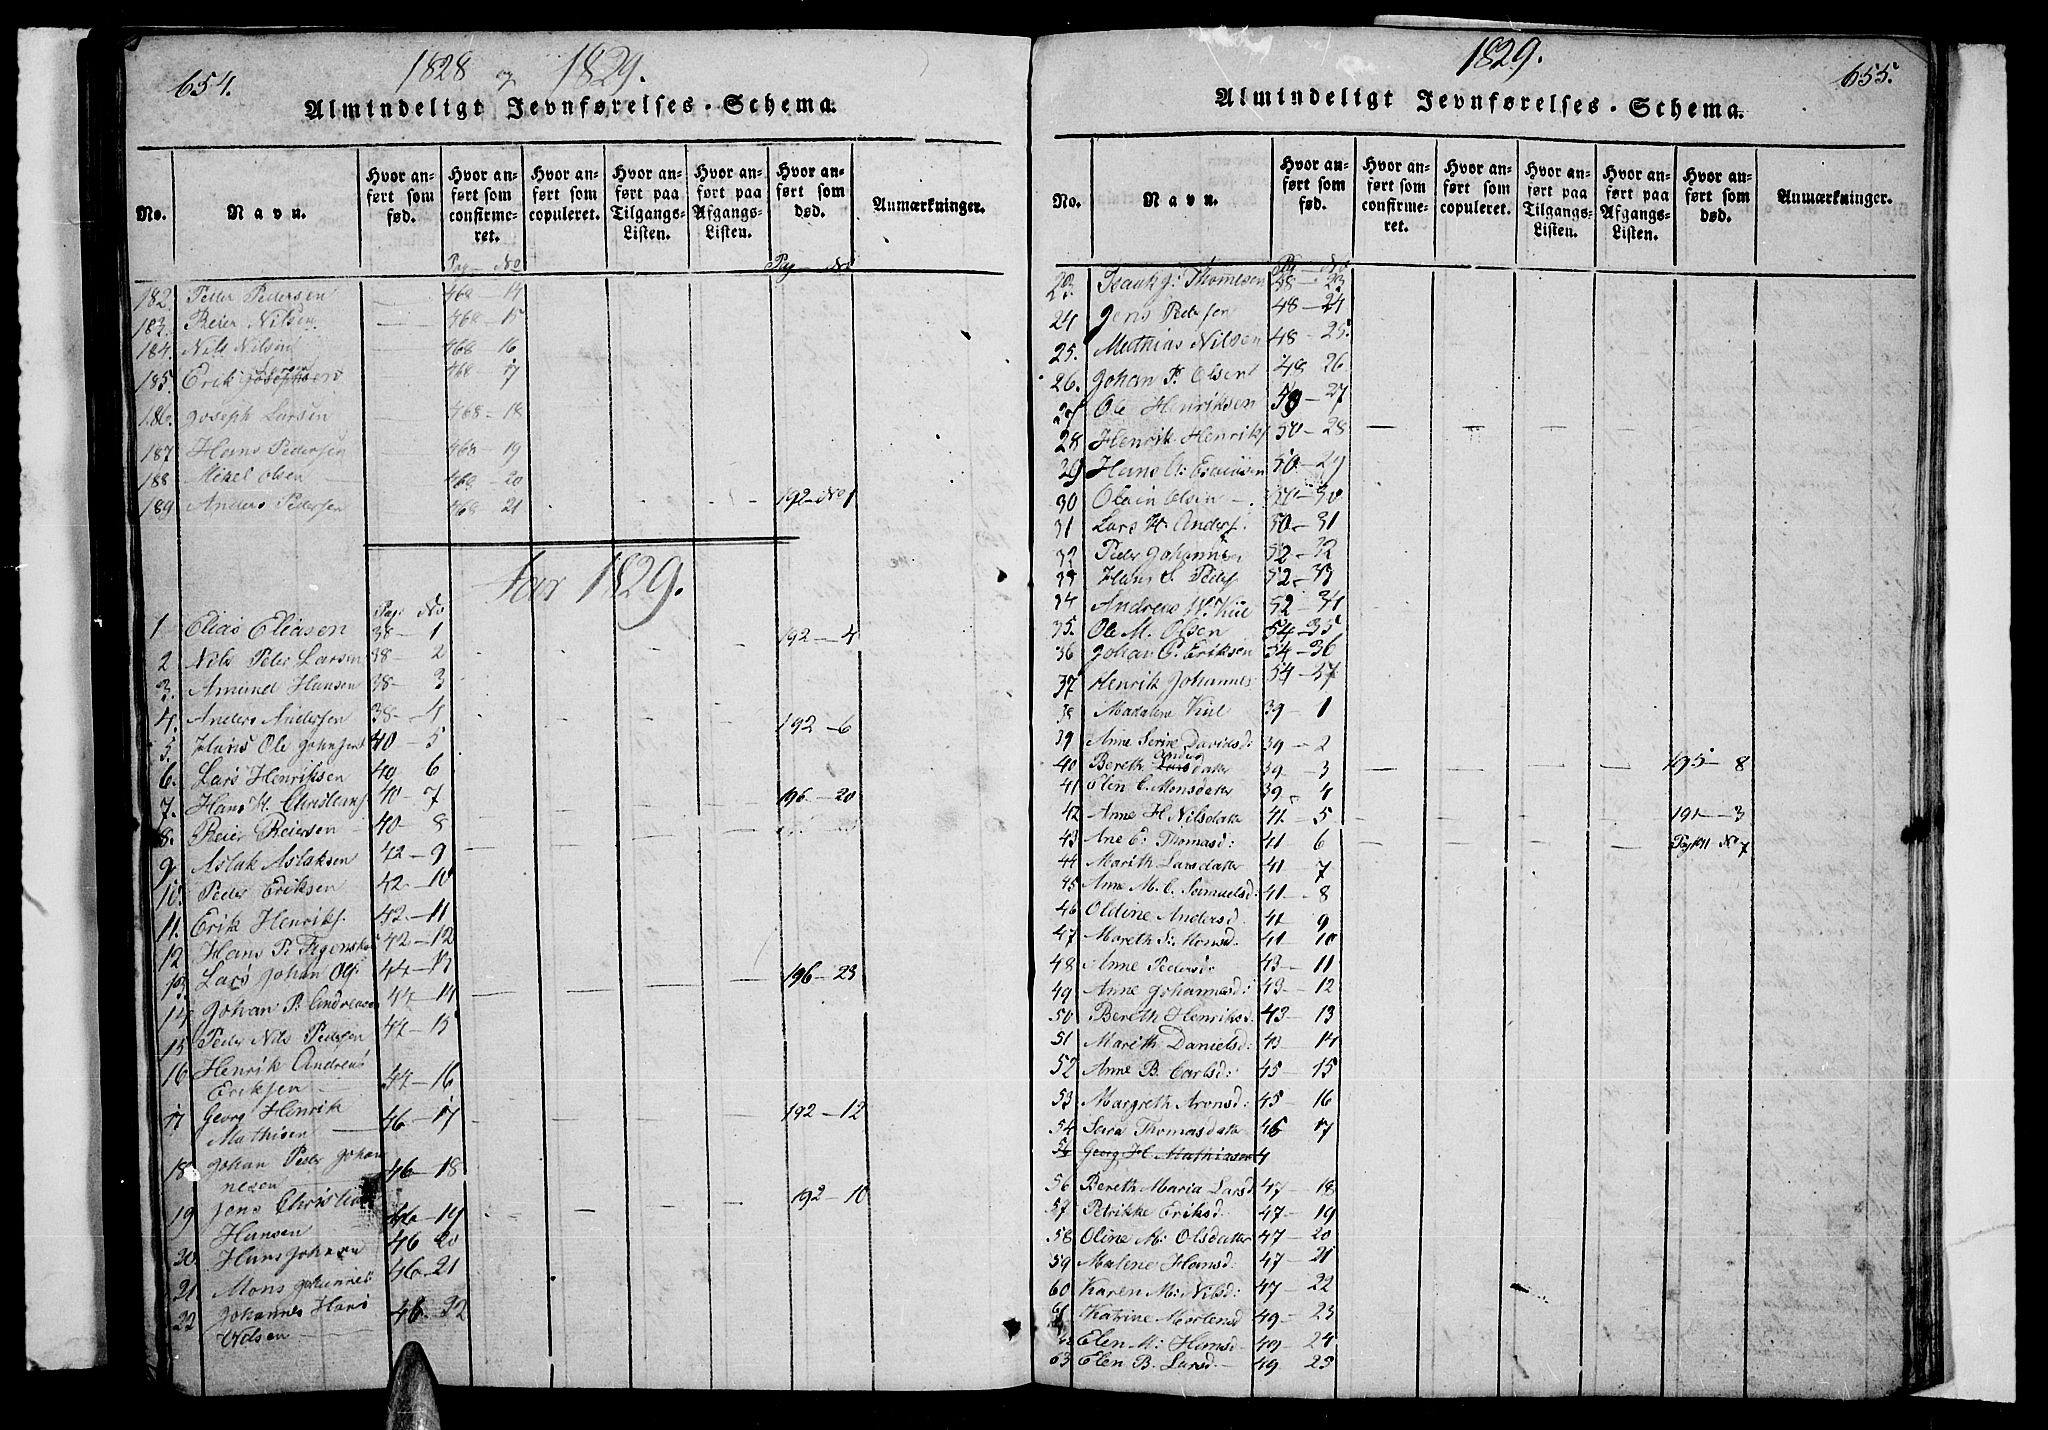 654.
1828 og 1829.
Almindeligt Jevnførelses-Schema.
No.
Navn.
Hvor anført som fød.
Hvor anført som confirmeret.
Hvor anført som copuleret.
Hvor anført paa Tilgangs-Listen.
Hvor anført paa Afgangs-Listen.
Hvor anført som død.
Anmærkninger.
Pag — No
Pag — No
182 Peder Pedersen 468 — 14
183. Reier Nilsen 468 — 15
184. Nils Nilsen 468 — 16
185. Erik Josephsen Larsen 468 17
186. Joseph Larsen 468 — 18
187 Hans Pedersen 468 — 19
188 Mikel Olsen 468 — 20
189 Anders Pedersen 468 21 192 — No 1
Aar 1829.
Pag. No
1 Elias Eliasen 38 — 1 192 — 4
2 Nils Peder Larsen 38 — 2
3. Amund Hansen 38 — 3
4. Anders Andersen 38 — 4 192 — 6
5. Hans Ole Johnsen 40 — 5
6. Lars Henriksen 40 — 6
7. Hans H. Christians 40 — 7 196 — 20
8. Reier Reiersen 40 — 8
9. Aslak Aslaksen 42 — 9
10. Peder Eriksen 42 — 10
11. Erik Henriks. 42 — 11
12 Hans P. 42 — 12
13. Lars Johan Ols. 44 — 13 196 — 23
14 Johan P. Andreasen 44 — 14
15 Peder Nils Pedersen 44 — 15
16 Henrik Andreas
Eriksen 44 — 16
17 Georg Henrik
Mathisen 46 — 17 192 — 12
18 Johan Peder Johan
nesen 46 — 18
19 Jens Christian
Hansen 46 — 19 192 — 10
20. Hans Johnsen 46 20
21. Mons Johannes 46 — 21
22 Johannes Hans
Nilsen 46 — 22
1829.
655.
Almindeligt Jevnførelses-Schema.
No.
Navn.
Hvor anført som fød.
Hvor anført som confirmeret.
Hvor anført som copuleret.
Hvor anført paa Tilgangs-Listen.
Hvor anført paa Afgangs-Listen.
Hvor anført som død.
Anmærkninger.
Pag — No
23. Isaak J: Thomesen 48 — 23
24 Jens Pedersen 48 — 24
25. Mathias Nilsen 48 — 25.
26. Johan P. Olsen 48 26
27 Ole Henriksen 50 — 27
28 Henrik Henriks. 50 — 28
29 Hans A: 50 — 29
30 Olsen 50 — 30
31 Lars H. Anders. 50 — 31
32 Peder Johannes 52 — 32
33 Hans S. Peders 52 — 33
34 Andreas W. Kiil 52 — 34
35. Ole M. Olsen 54 — 35
36 Johan C. Eriksen 54 — 36
37 Henrik Johannes 54 — 37
38 Madalene Kiil 39 — 1
39 Anne Serine Daviksd: 39 — 2
40 Bereth Larsdatter Anders 39 — 3 195 — 8
41 Elen C. Monsdatter 39 — 4
42 Anne H. Nilsdatter 41 — 5 191 — 3
43 Ane E. Thomasd: 41 6 Pag 191 No 7
44 Mareth Larsdatter 41 — 7
45 Anne M. C. Samuelsd: 41 — 8
46 Oldine Andersd. 41 9
47 Mareth S: Monsd. 41 — 10
48 Anne Pedersd. 43 — 11
49 Anne Johannesd: 43 — 12
50 Bereth Henriksd. 43 — 13
51 Mareth Danielsd: 43 — 14
52 Anne B. Carlsd: 45 — 15
53 Margreth Aronsd: 45 — 16
54 Sera Thomasdatter 45 17
Georg H. Mathiesen 4
56 Bereth Maria Larsd. 47 — 18
57 Petrikke Eriksd. 47 — 19
58 Oline M: Olsdatter 47 — 20
59 Malene Hansd: 47 — 21
60 Karen M: Nilsd: 47 — 22
61 Katrine Mortensd 49 — 23
62 Elen M: Hansd: 49 — 24
63 Elen B. Larsd. — 49 25